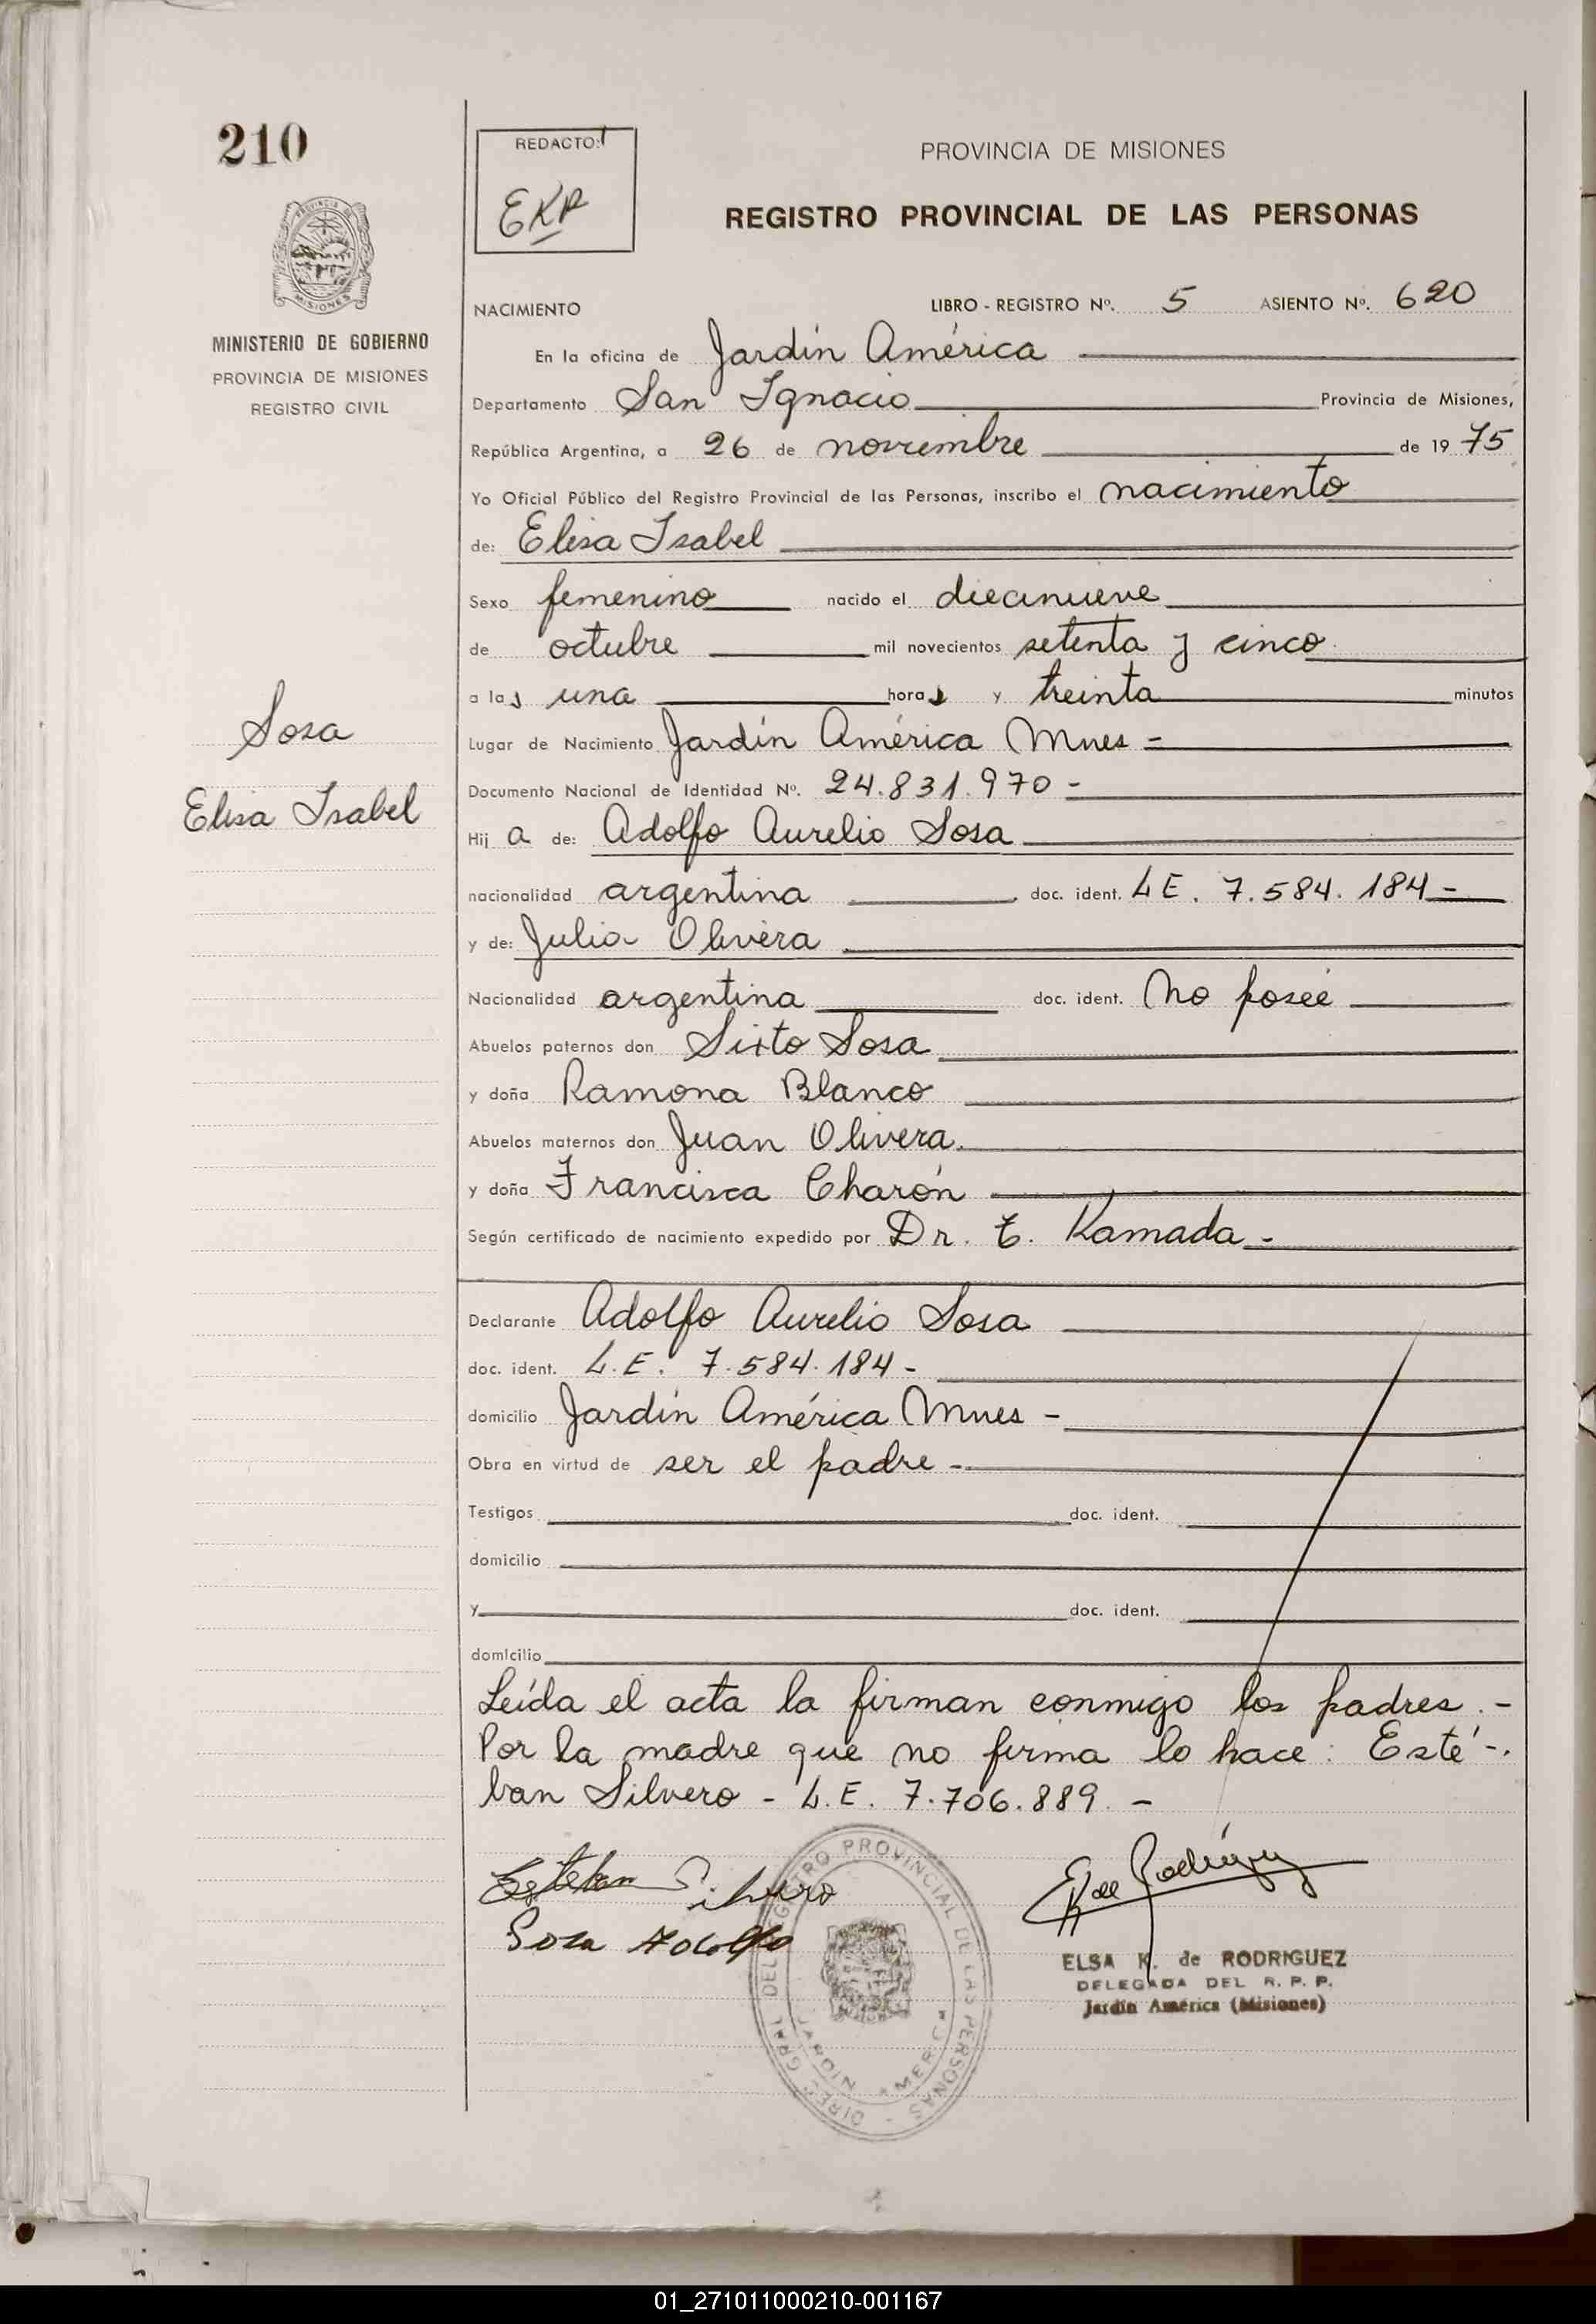 210
REDACTO:
EKR
PROVINCIA DE MISIONES
REGISTRO PROVINCIAL DE LAS PERSONAS
MINISTERIO DE GOBIERNO
PROVINCIA DE MISIONES
REGISTRO CIVIL
NACIMIENTO LIBRO - REGISTRO Nº. 5 ASIENTO Nº. 620
En la oficina de Jardín América
Departamento San Ignacio Provincia de Misiones,
República Argentina, a 26 de noviembre de 19 75
Yo Oficial Público del Registro Provincial de las Personas, inscribo el nacimiento
de: Elisa Isabel
Sexo femenino nacido el diecinueve
de octubre mil novecientos setenta y cinco
a las una horas y treinta minutos
Sosa
Lugar de Nacimiento Jardín América Mnes -
Documento Nacional de Identidad Nº. 24.831.970 -
Elisa Isabel
Hij a de: Adolfo Aurelio Sosa
nacionalidad argentina doc. ident. L E. 7.584.184 -
y de: Julia Olivera
Nacionalidad argentina doc. ident. No posee
Abuelos paternos don Sixto Sosa
y doña Ramona Blanco
Abuelos maternos don Juan Olivera.
y doña Francisca Charón
Según certificado de nacimiento expedido por Dr. T. Kamada -
Declarante Adolfo Aurelio Sosa
doc. ident. L.E. 7.584.184 -
domicilio Jardín América Mnes -
Obra en virtud de ser el padre -
Testigos doc. ident.
domicilio
y doc. ident.
domicilio
Leída el acta la firman conmigo los padres. -
Por la madre que no firma lo hace: Esté-
ban Silvero - L.E. 7.706.889. -
Esteban Silvero
Sosa Adolfo
EK de Rodríguez
ELSA K. de RODRIGUEZ
DELEGADA DEL R. P. P.
Jardín América (Misiones)
DIREC. GRAL. DEL REGISTRO PROVINCIAL DE LAS PERSONAS -
JARDIN AMERICA
01_271011000210-001167